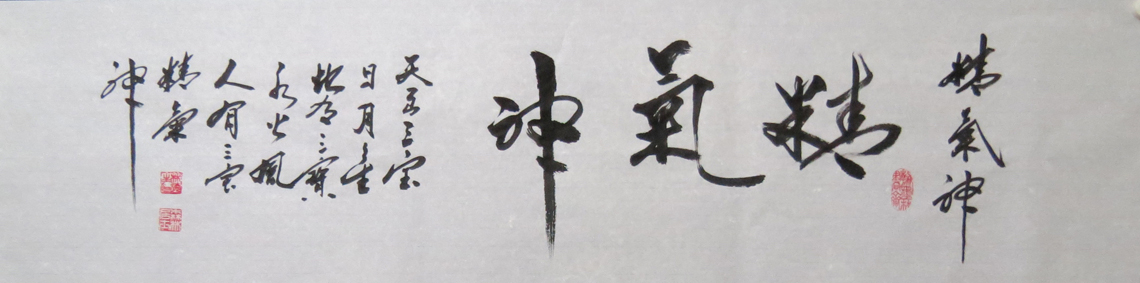 精氣神
精氣神
天有三宝
日月星
地有三寶
水火風
人有三宝
精氣
神